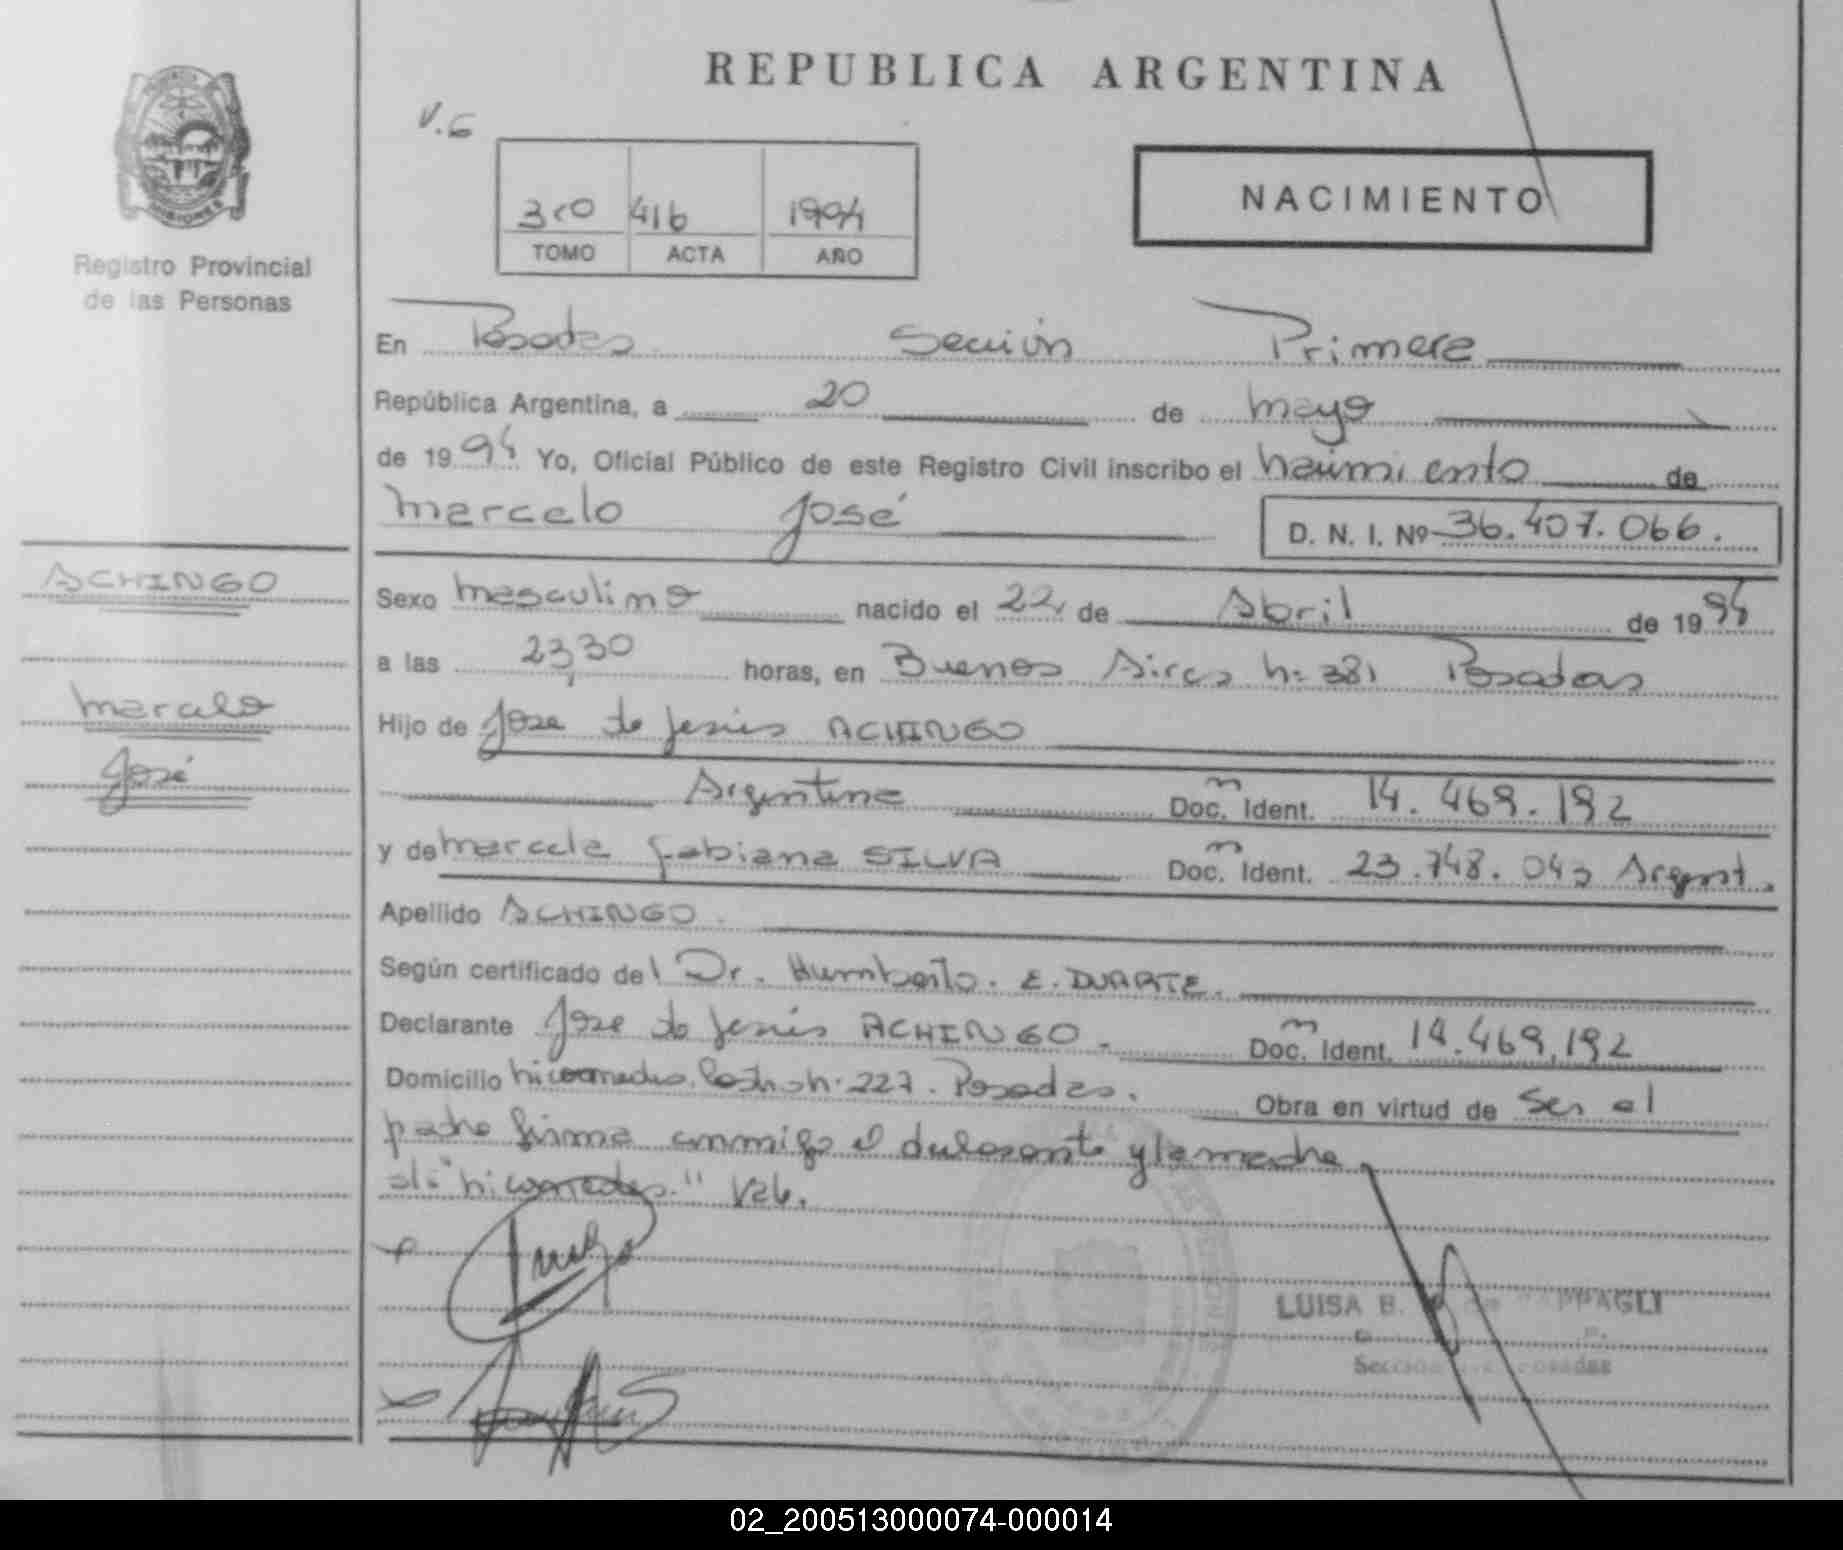 REPUBLICA ARGENTINA
V.G
NACIMIENTO
416 1994
TOMO ACTA AÑO
MISIONES
Registro Provincial
de las Personas
En Posadas Sección Primera
República Argentina, a 20 de mayo
de 1994 Yo, Oficial Público de este Registro Civil inscribo el nacimiento de
Marcelo José D. N. I. Nº 36.407.066.
ACHINGO
Marcelo
José
Sexo masculino nacido el 22 de Abril de 1994
a las 23,30 horas, en Buenos Aires nº 381 Posadas
Hijo de Jose de Jesús ACHINGO
Argentina Doc. Ident. m 14.469.192
y de Marcela Fabiana SILVA Doc. Ident. m 23.748.043 Argent.
Apellido ACHINGO.
Según certificado del Dr. Humberto. E. DUARTE.
Declarante Jose de Jesús ACHINGO. Doc. Ident. m 14.469.192
Domicilio nicomedes Castro nº 227. Posadas. Obra en virtud de ser el
padre firma conmigo el declarante y la madre
"nicomedes." Vale.
LUISA B. de PAPPAGLI
Sección Posadas
02_200513000074-000014